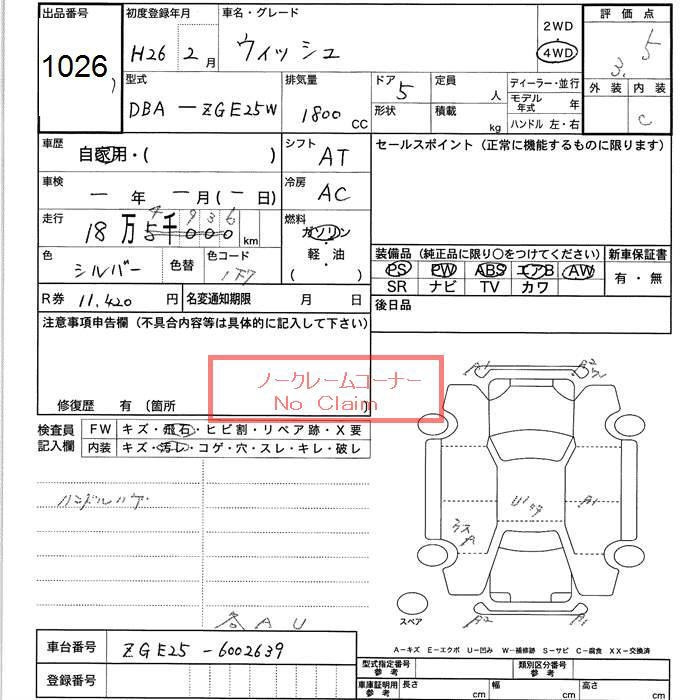 出品番号 初度登録年月 車名・グレード 評価点
1026 H26 2月 ウィッシュ 2WD 4WD 3.5
型式 排気量 ドア 定員 ディーラー・並行 外装 内装
DBA-ZGE25W 1800 CC 5 人 モデル年式 年 C
形状 積載 kg ハンドル 左・右
車歴 自家用・( ) シフト AT セールスポイント (正常に機能するものに限ります)
車検 ー年ー月(ー日) 冷房 AC
走行 18万5千000 km 燃料 ガソリン・軽油
4 9 3 6 ( )
色 シルバー 色替 色コード 1F7
装備品 (純正品に限り○をつけてください) 新車保証書
PS PW ABS エアB AW 有・無
SR ナビ TV カワ
R券 11,420 円 名変通知期限 月 日 後日品
注意事項申告欄 (不具合内容等は具体的に記入して下さい)
ノークレームコーナー
No Claim
修復歴 有 (箇所 )
検査員記入欄 FW キズ・飛石・ヒビ割・リペア跡・X要
内装 キズ・汚レ・コゲ・穴・スレ・キレ・破レ
ハンドルハゲ
A1
A1
A1
A2
各 A U
スペア
A-キズ E-エクボ U-凹み W-補修跡 S-サビ C-腐食 XX-交換済
車台番号 ZGE25-6002639
登録番号
型式指定番号 参考 類別区分番号 参考
車庫証明用 参考 長さ cm 幅 cm 高さ cm